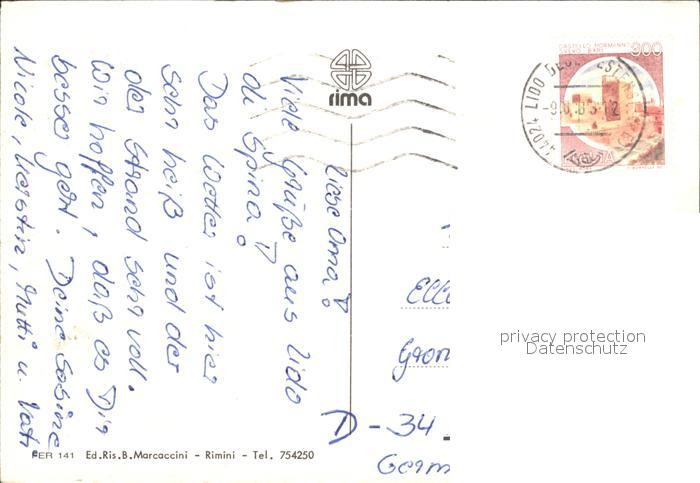 liebe Oma!
Viele Grüße aus Lido
di Spina!
Das Wetter ist hier
sehr heiß und der
der Strand sehr voll.
Wir hoffen, daß es Dir
besser geht. Deine Sabine
Nicole, Kerstin, Mutti u. Vati
rima
CASTELLO NORMANNO
SVEVO - BARI
900
44024 LIDO DEGLI ESTENSI
-9.8.83-12
ITALIA
D - 34
Germ
privacy protection
Datenschutz
PER 141 Ed.Ris.B.Marcaccini - Rimini - Tel. 754250